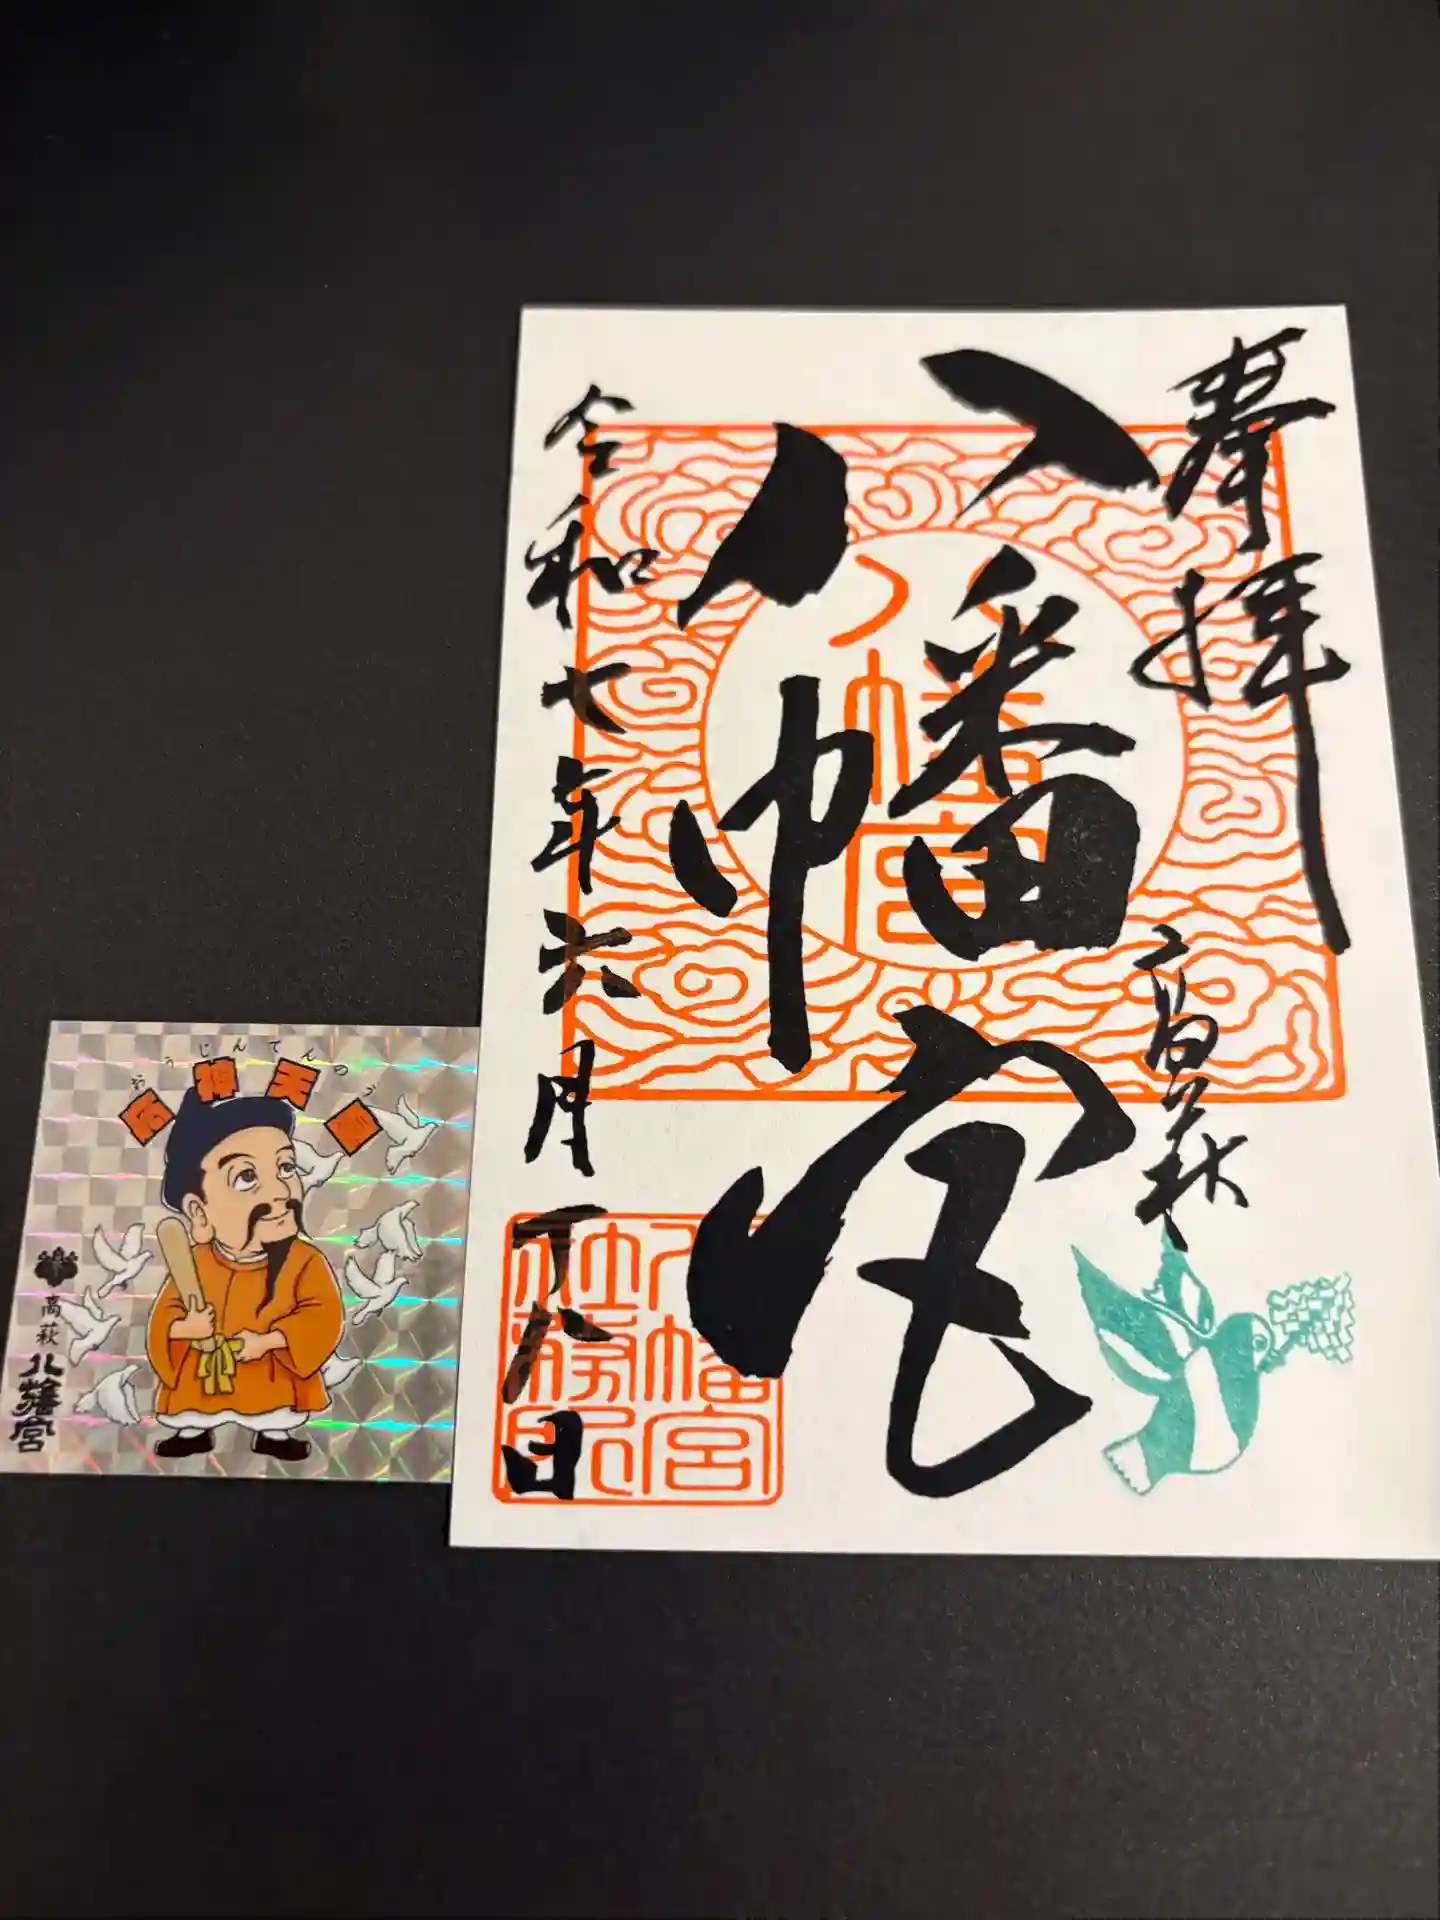 奉拝
高萩
八幡宮
令和七年六月十八日
八幡宮
八幡宮
社務所
おうじんてんのう
応神天皇
高萩
八幡宮